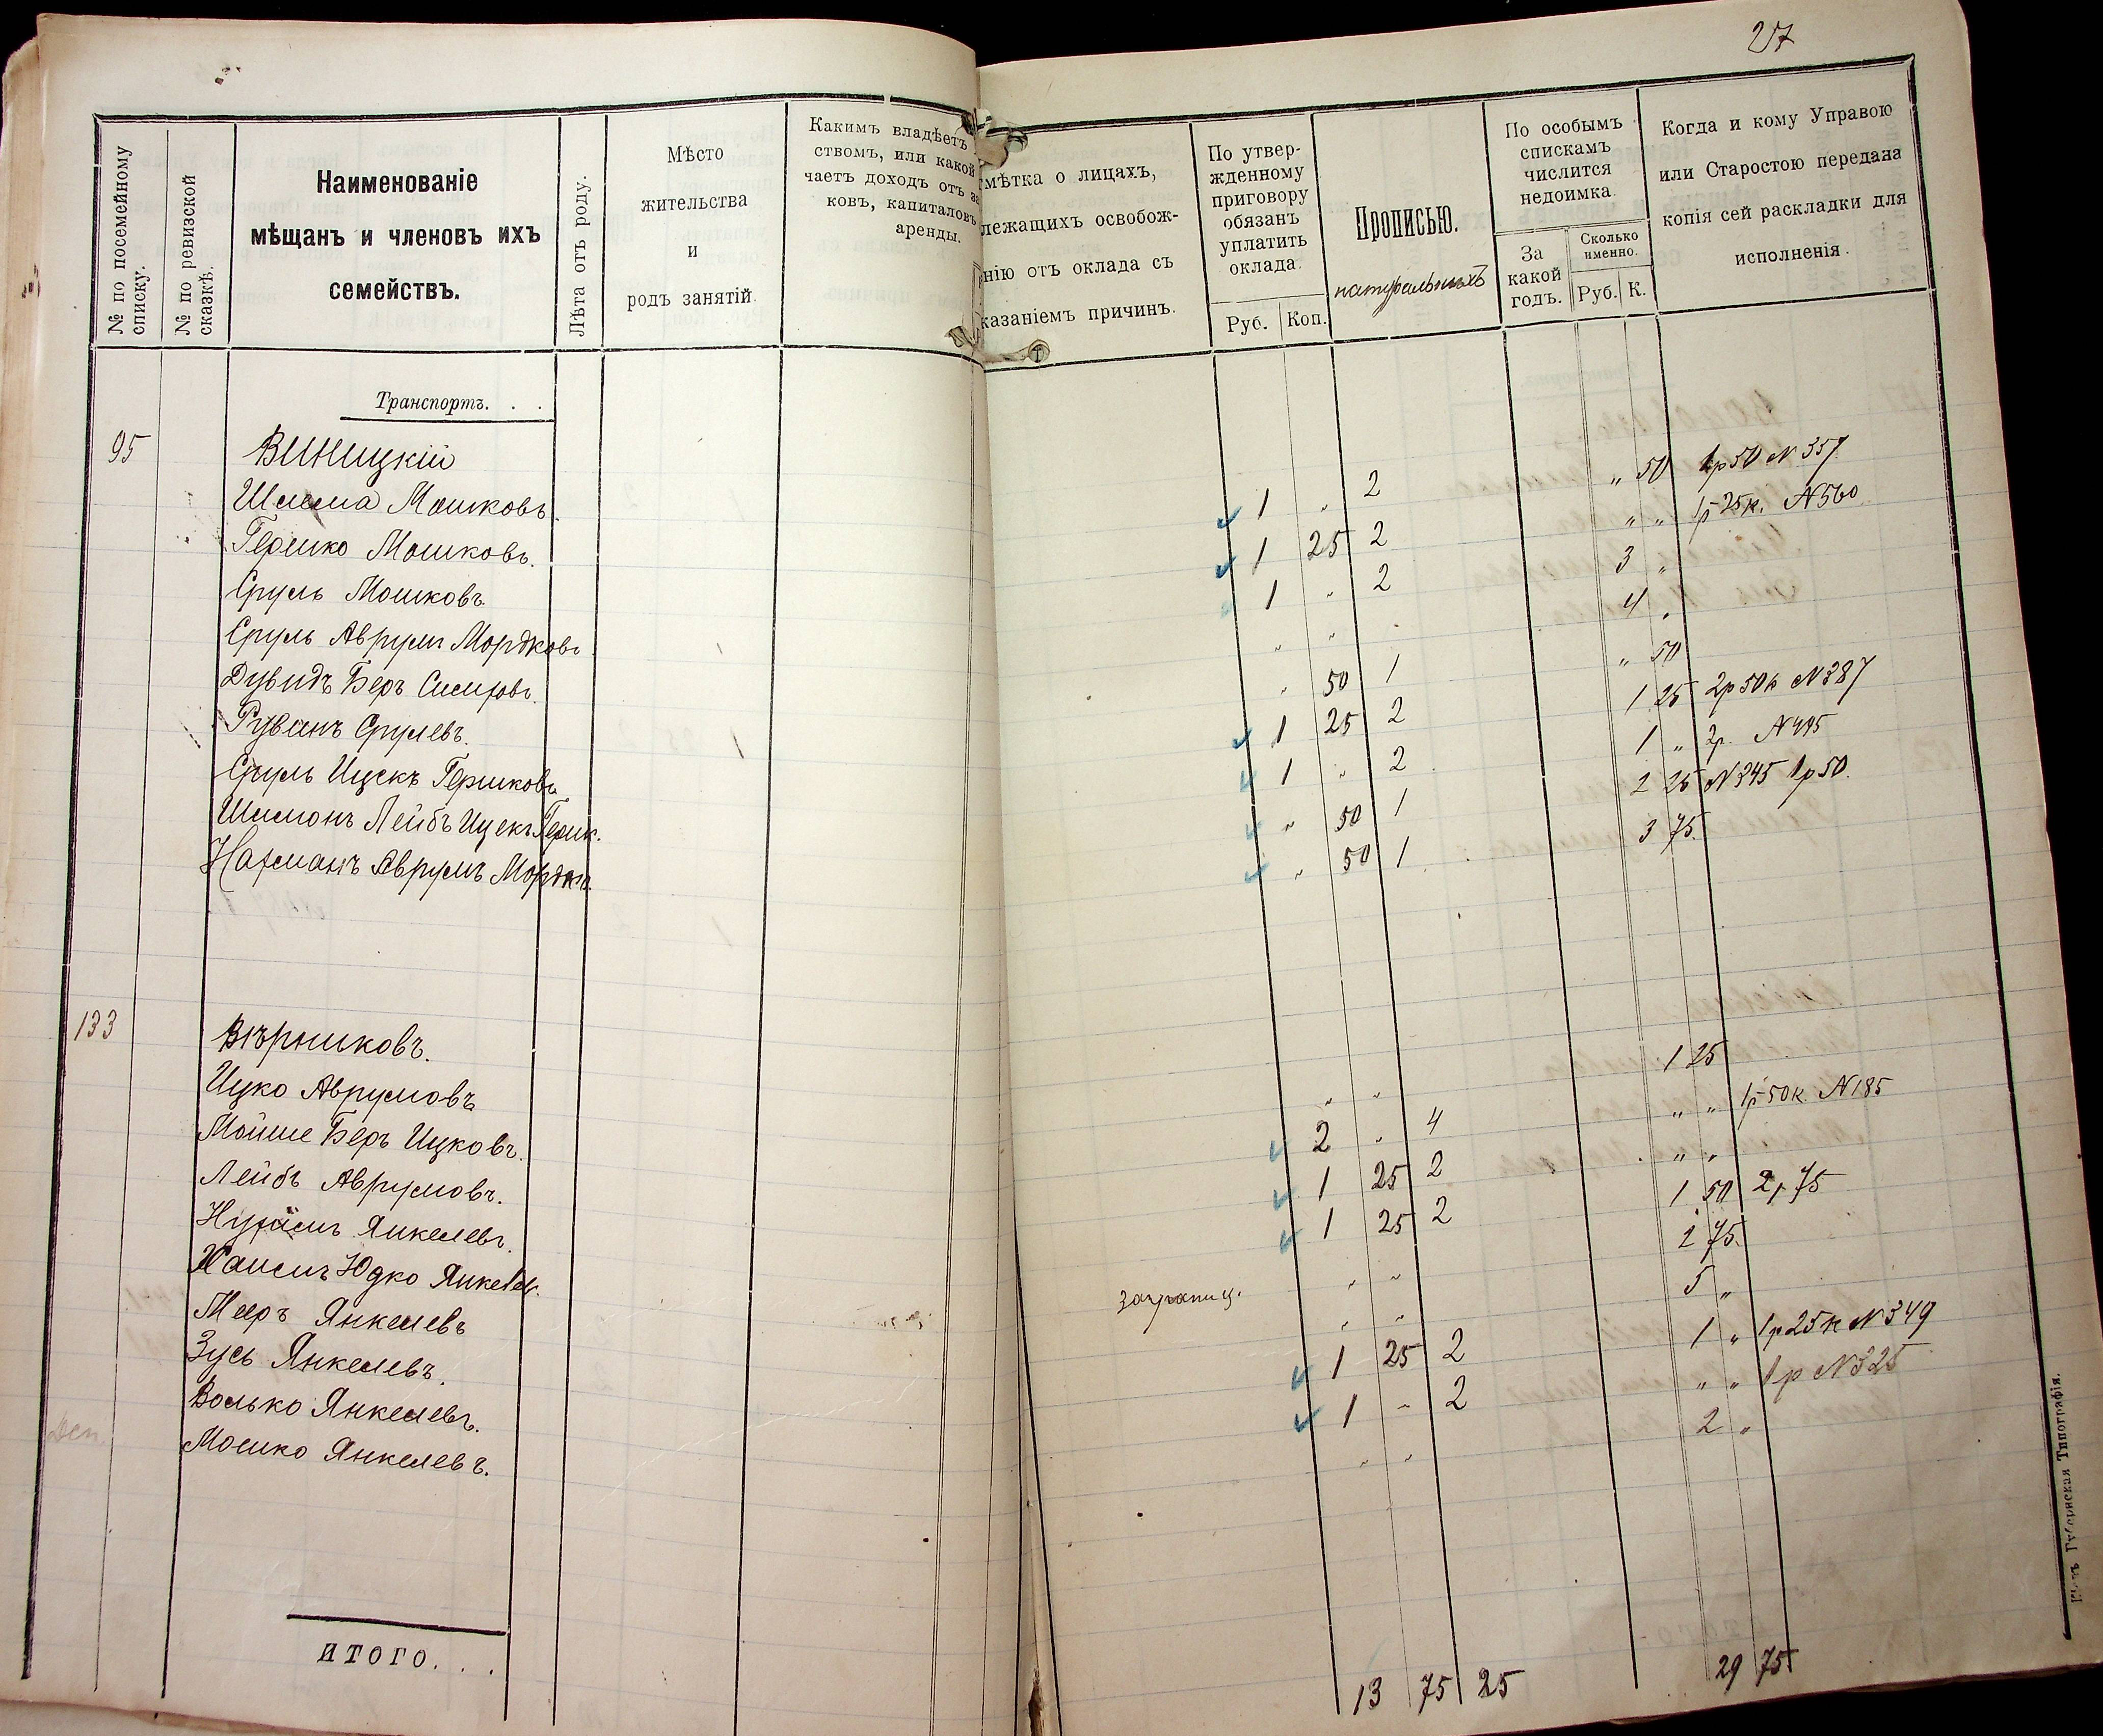 27
№ по посемейному списку.
№ по ревизской сказкѣ.
Наименованіе
мѣщанъ и членовъ ихъ
семействъ.
Лѣта отъ роду.
Мѣсто
жительства
и
родъ занятій.
Какимъ владѣетъ
ствомъ, или какой
чаетъ доходъ отъ за
ковъ, капиталовъ
аренды.
мѣтка о лицахъ,
лежащихъ освобож-
нію отъ оклада съ
казаніемъ причинъ.
По утвер-
жденному
приговору
обязанъ
уплатить
оклада.
Руб. Коп.
Прописью.
натуральныхъ
По особымъ
спискамъ
числится
недоимка.
За
какой
годъ.
Сколько
именно.
Руб. К.
Когда и кому Управою
или Старостою передана
копія сей раскладки для
исполненія.
Транспортъ. . .
95 Виницкій
Шлема Мошковъ. 1 „ 2 „ 50 1р50 N 357
Гершко Мошковъ. 1 25 2 „ „ 1р 25к. N560
Сруль Мошковъ. 1 „ 2 3 „
Сруль Аврумъ Мордковъ „ „ 4 „
Дувидъ Беръ Симховъ. „ 50 1 „ 50
Рувинъ Срулевъ. 1 25 2 1 25 2р50к N387
Сруль Ицекъ Гершковъ 1 „ 2 1 „ 2р. N495
Шимонъ Лейбъ Ицекъ Гершк. „ 50 1 2 25 N345 1р50.
Нахманъ Аврумъ Мордк. „ 50 1 3 75.
133 Вѣрниковъ.
Ицко Аврумовъ „ „ 1 25
Мойше Беръ Ицковъ. 2 „ 4 „ „ 1р50к. N185
Лейбъ Аврумовъ. 1 25 2 „ „
Нухимъ Янкелевъ. 1 25 2 1 50 2р75
Хаимъ Юдко Янкелев. „ „ 2 75.
Мееръ Янкелевъ заграниц. „ „ 5 „
Зусь Янкелевъ. 1 25 2 1 „ 1р25к N349
Волько Янкелевъ. 1 „ 2 „ „ 1р N325
Мошко Янкелевъ. „ „ 2 „
ИТОГО. . . 13 75 25 29 75
Губернская Типографія.